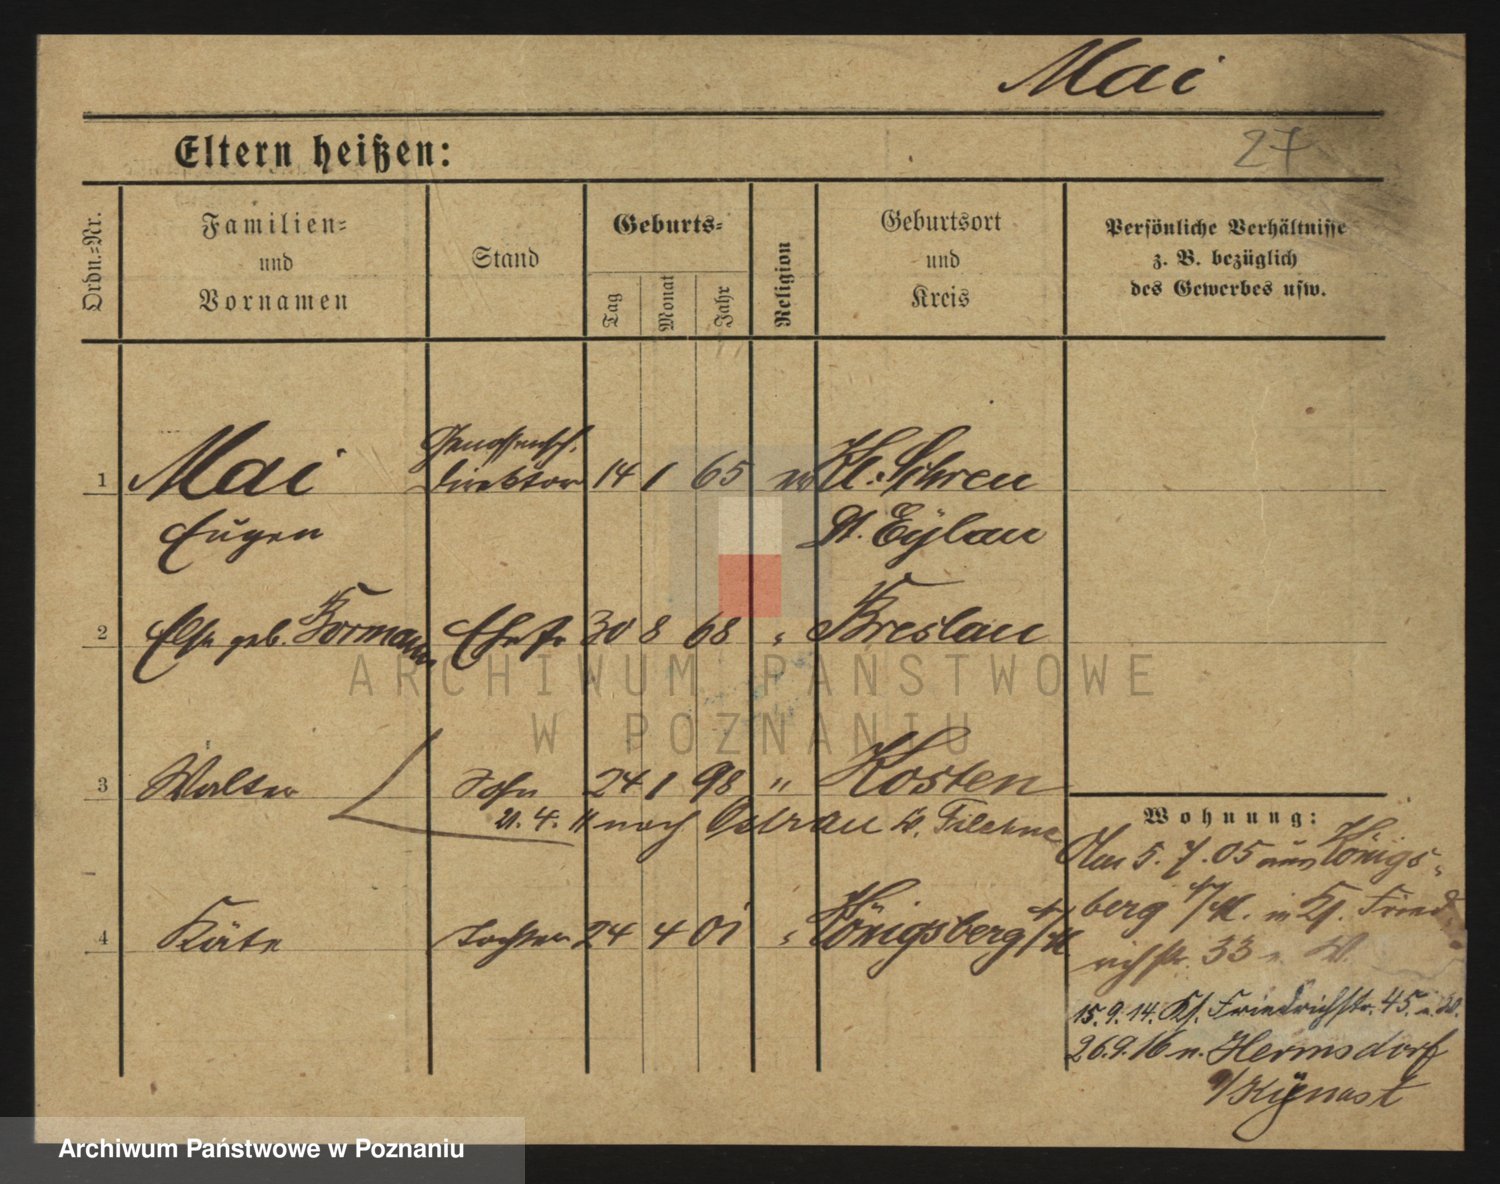 Mai
27
Eltern heißen:
Ordn.-Nr.
Familien-
und
Vornamen
Stand
Geburts-
Tag
Monat
Jahr
Religion
Geburtsort
und
Kreis
Persönliche Verhältnisse
z. B. bezüglich
des Gewerbes usw.
Genossensch.
1 Mai Direktor 14 1 65 Kl. Sehren
Eugen Dt. Eylau
2 Else geb. Bormann Ehefr 30 8 68 " Breslau
3 Walter Sohn 24 1 98 " Kosten
21. 4. 11 nach Ostrau b. Filehne
4 Käte Tochter 24 4 01 " Königsberg
Wohnung:
5. 7. 05 aus Königs-
berg in Ks. Fried
richstr. 33
15. 9. 14. Ks. Friedrichstr. 45.
26.9.16 n. Hermsdorf
Kynast
ARCHIWUM PAŃSTWOWE
W POZNANIU
Archiwum Państwowe w Poznaniu